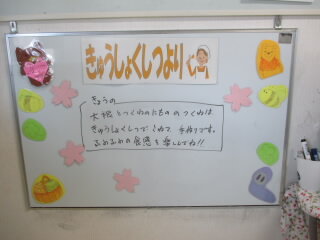 きゅうしょくしつより
きょうの
大根とつくねのにもののつくねは
きゅうしょくしつでこねて、手作りです。
ふわふわの食感を楽しんでね!!